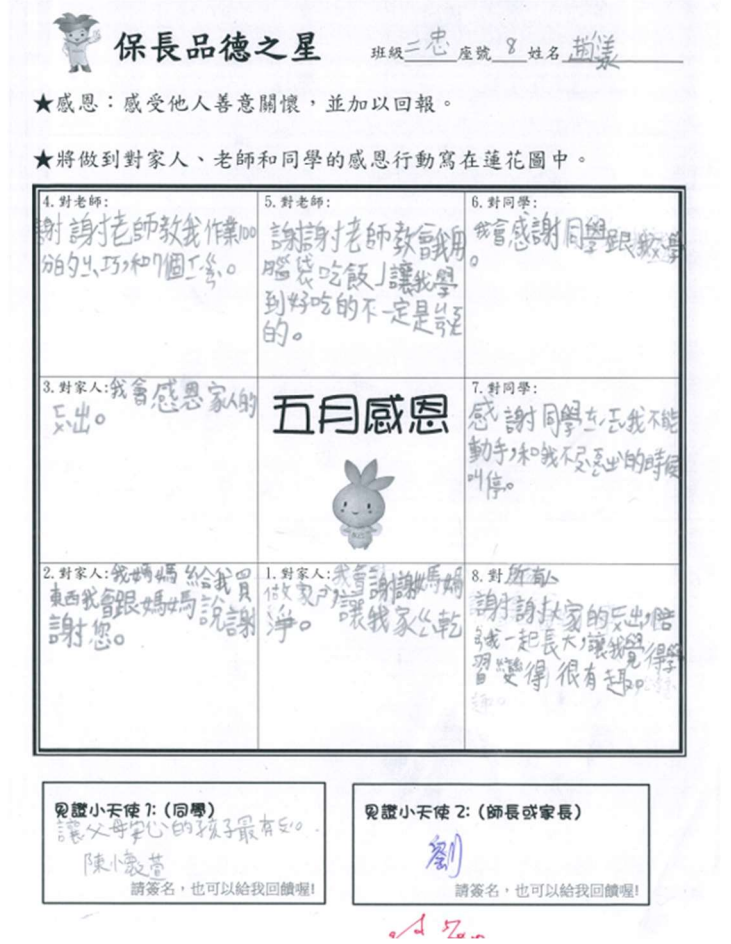 保長品德之星
班級 二忠 座號 8 姓名
★感恩：感受他人善意關懷，並加以回報。
★將做到對家人、老師和同學的感恩行動寫在蓮花圖中。
4.對老師：
謝謝老師教我作業100
分的
5.對老師：
謝謝老師教會我用
腦袋吃飯」讓我學
到好吃的不一定是
的。
6.對同學：
我會感謝同學跟我
3.對家人：我會感恩家人的
出。
五月感恩
7.對同學：
感謝同學 我不能
動手,和我不 的時候
叫停。
2.對家人：我媽媽給我買
東西我會跟媽媽說謝
謝您。
1.對家人：我會謝謝媽媽
做家 讓我家 乾
淨。
8.對所有人
謝謝大家的 出,陪
我一起長大,讓我覺得學
習變得很有趣
見證小天使1：(同學)
讓父母安心的孩子最有
陳
請簽名，也可以給我回饋喔!
見證小天使2：(師長或家長)
劉
請簽名，也可以給我回饋喔!